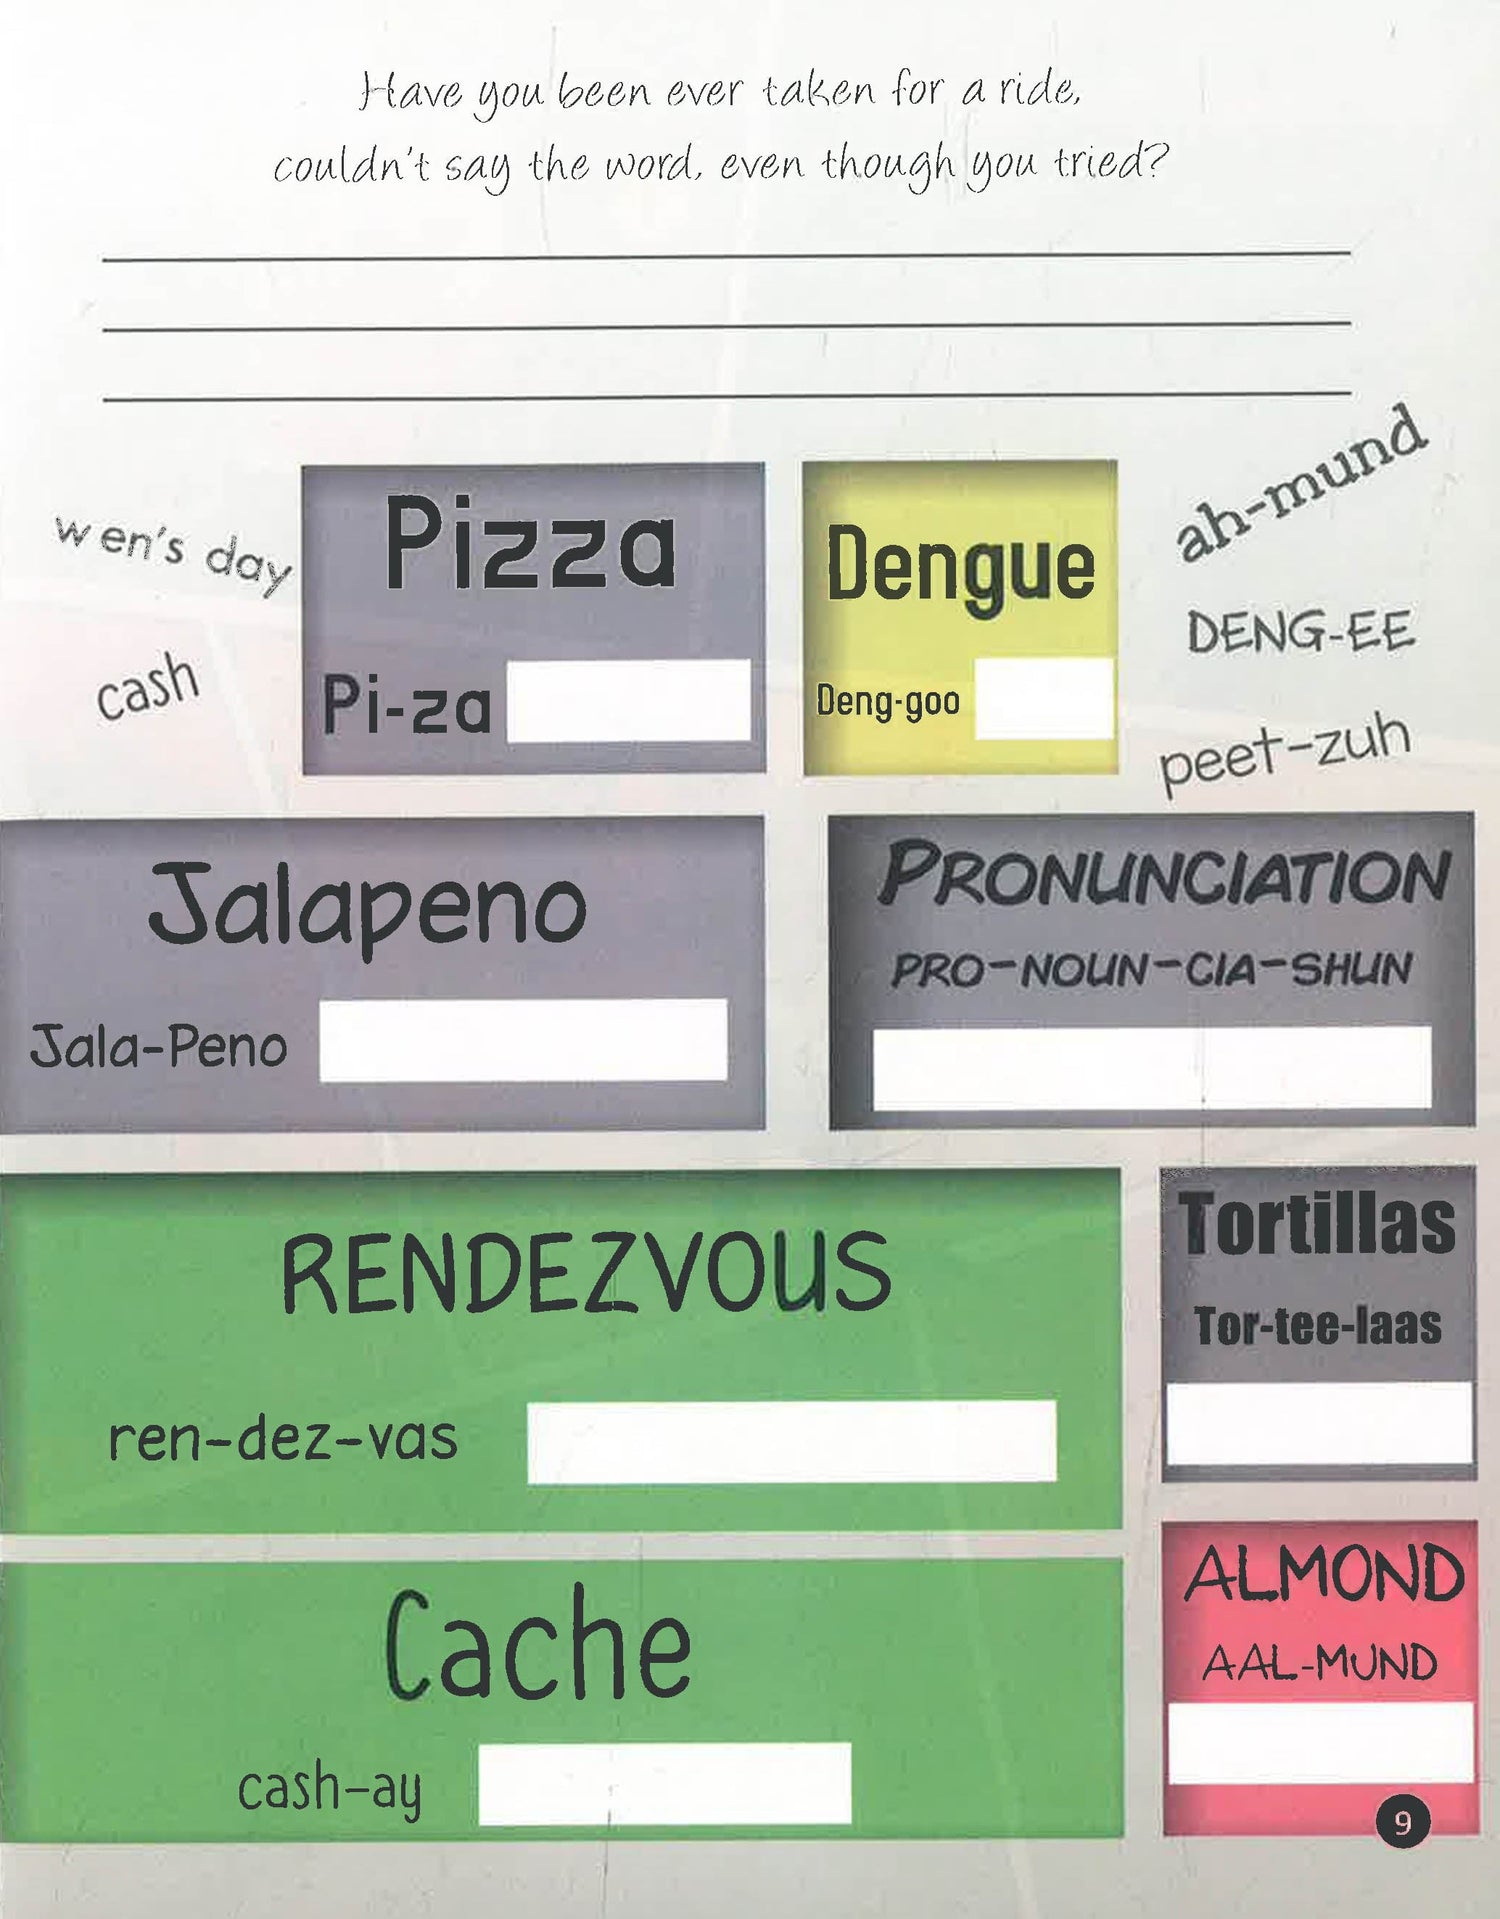 Have you been ever taken for a ride,
couldn't say the word, even though you tried?
wen's day
cash
Pizza
Pi-za
Dengue
Deng-goo
ah-mund
DENG-EE
peet-zuh
Jalapeno
Jala-Peno
PRONUNCIATION
PRO-NOUN-CIA-SHUN
RENDEZVOUS
ren-dez-vas
Tortillas
Tor-tee-laas
Cache
cash-ay
ALMOND
AAL-MUND
9